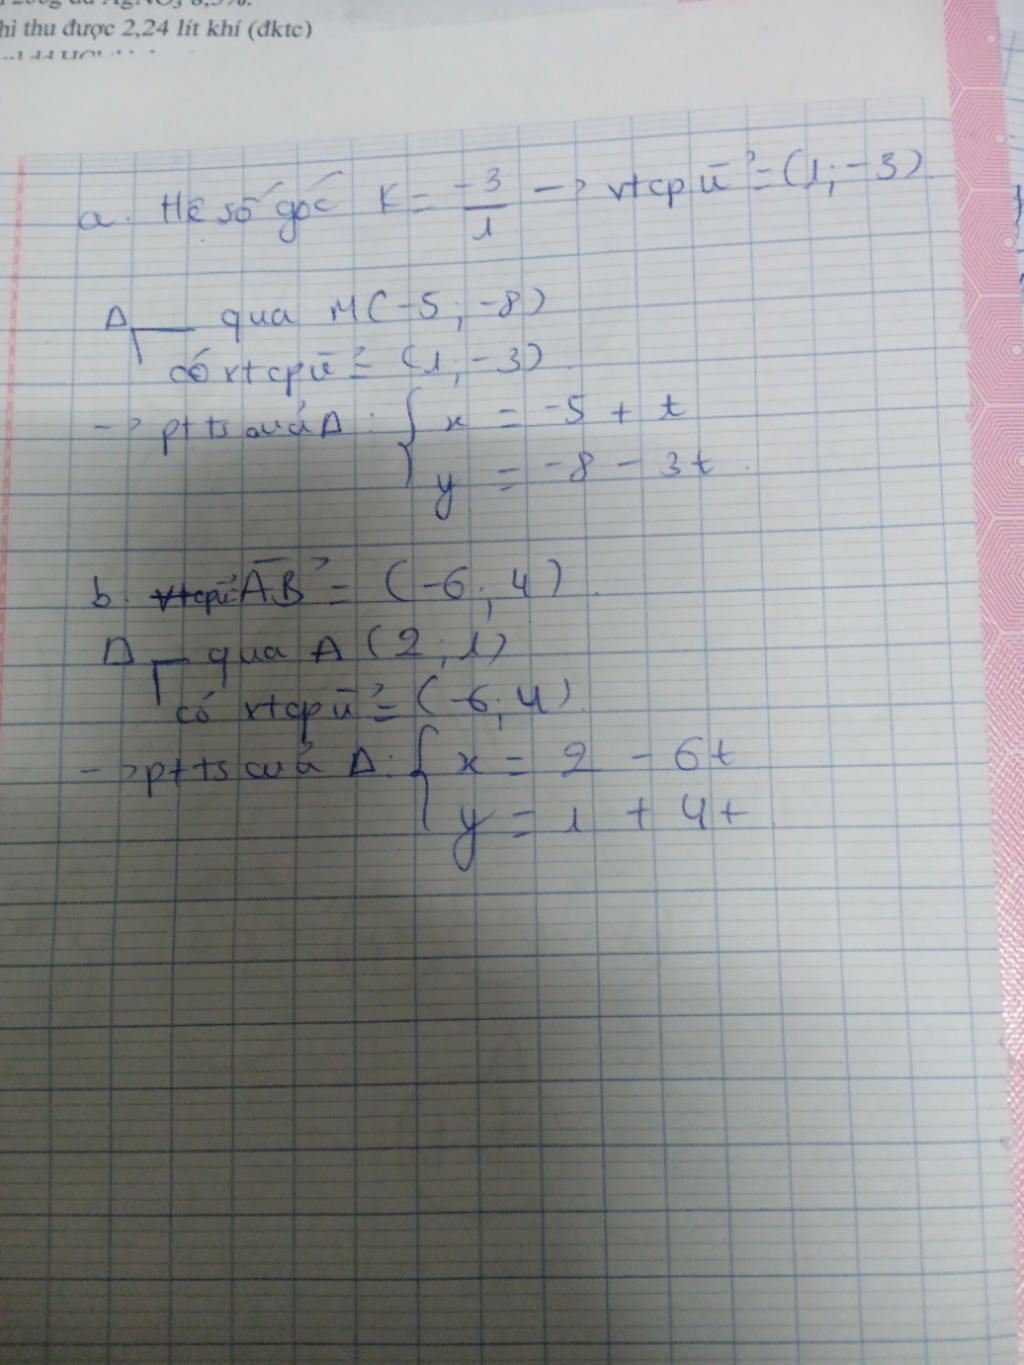 200g dd AgNO3 8,5%.
hì thu được 2,24 lít khí (đktc)
a. Hệ số góc K = -3/1 -> vtcp u = (1; -3)
Δ qua M(-5; -8)
có vtcp u = (1; -3)
-> ptts của Δ: { x = -5 + t
y = -8 - 3t
b. AB = (-6; 4)
Δ qua A (2; 1)
có vtcp u = (-6; 4)
-> ptts của Δ: { x = 2 - 6t
y = 1 + 4t